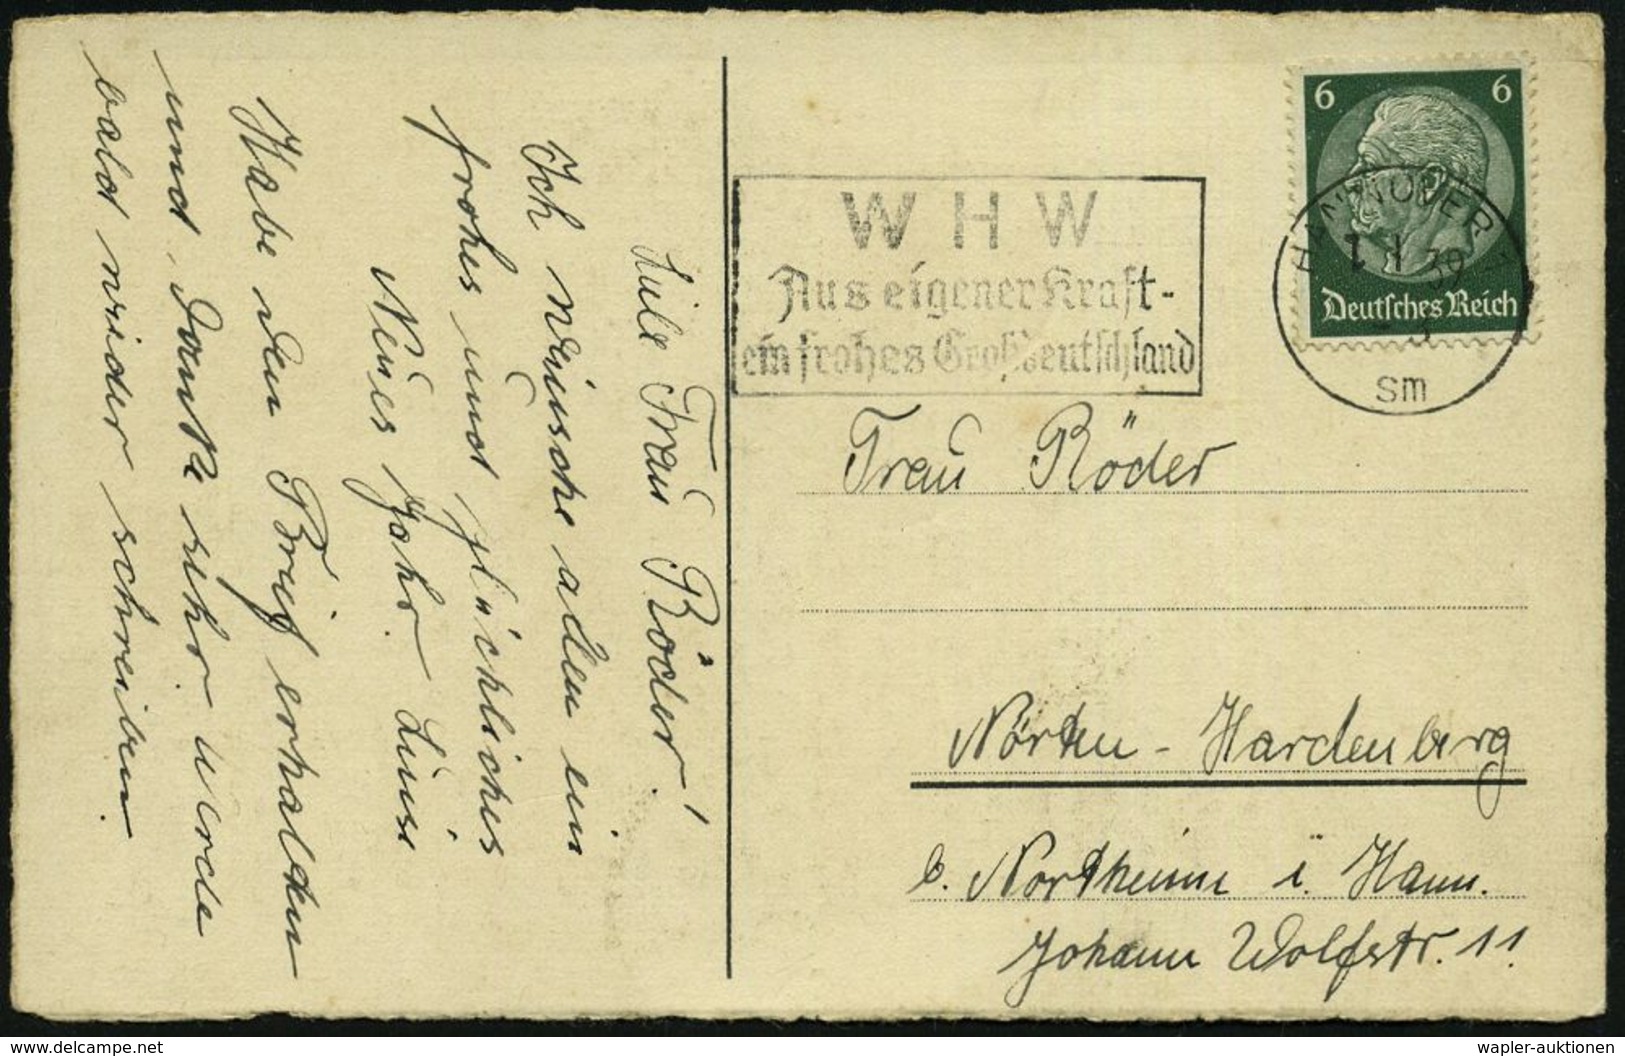 Liebe Frau Röder!
Ich wünsche allen ein
frohes und glückliches
Neues Jahr. Luise
Habe den Brief erhalten
und danke sehr werde
bald wieder schreiben
6 6
Deutsches Reich
HANNOVER
39
sm
W H W
Aus eigener Kraft-
ein frohes Großdeutschland
Frau Röder
Nörten - Hardenberg
b. Northeim i. Hann.
Johann Wolfstr. 11.
delcampe.net
wapler-auktionen